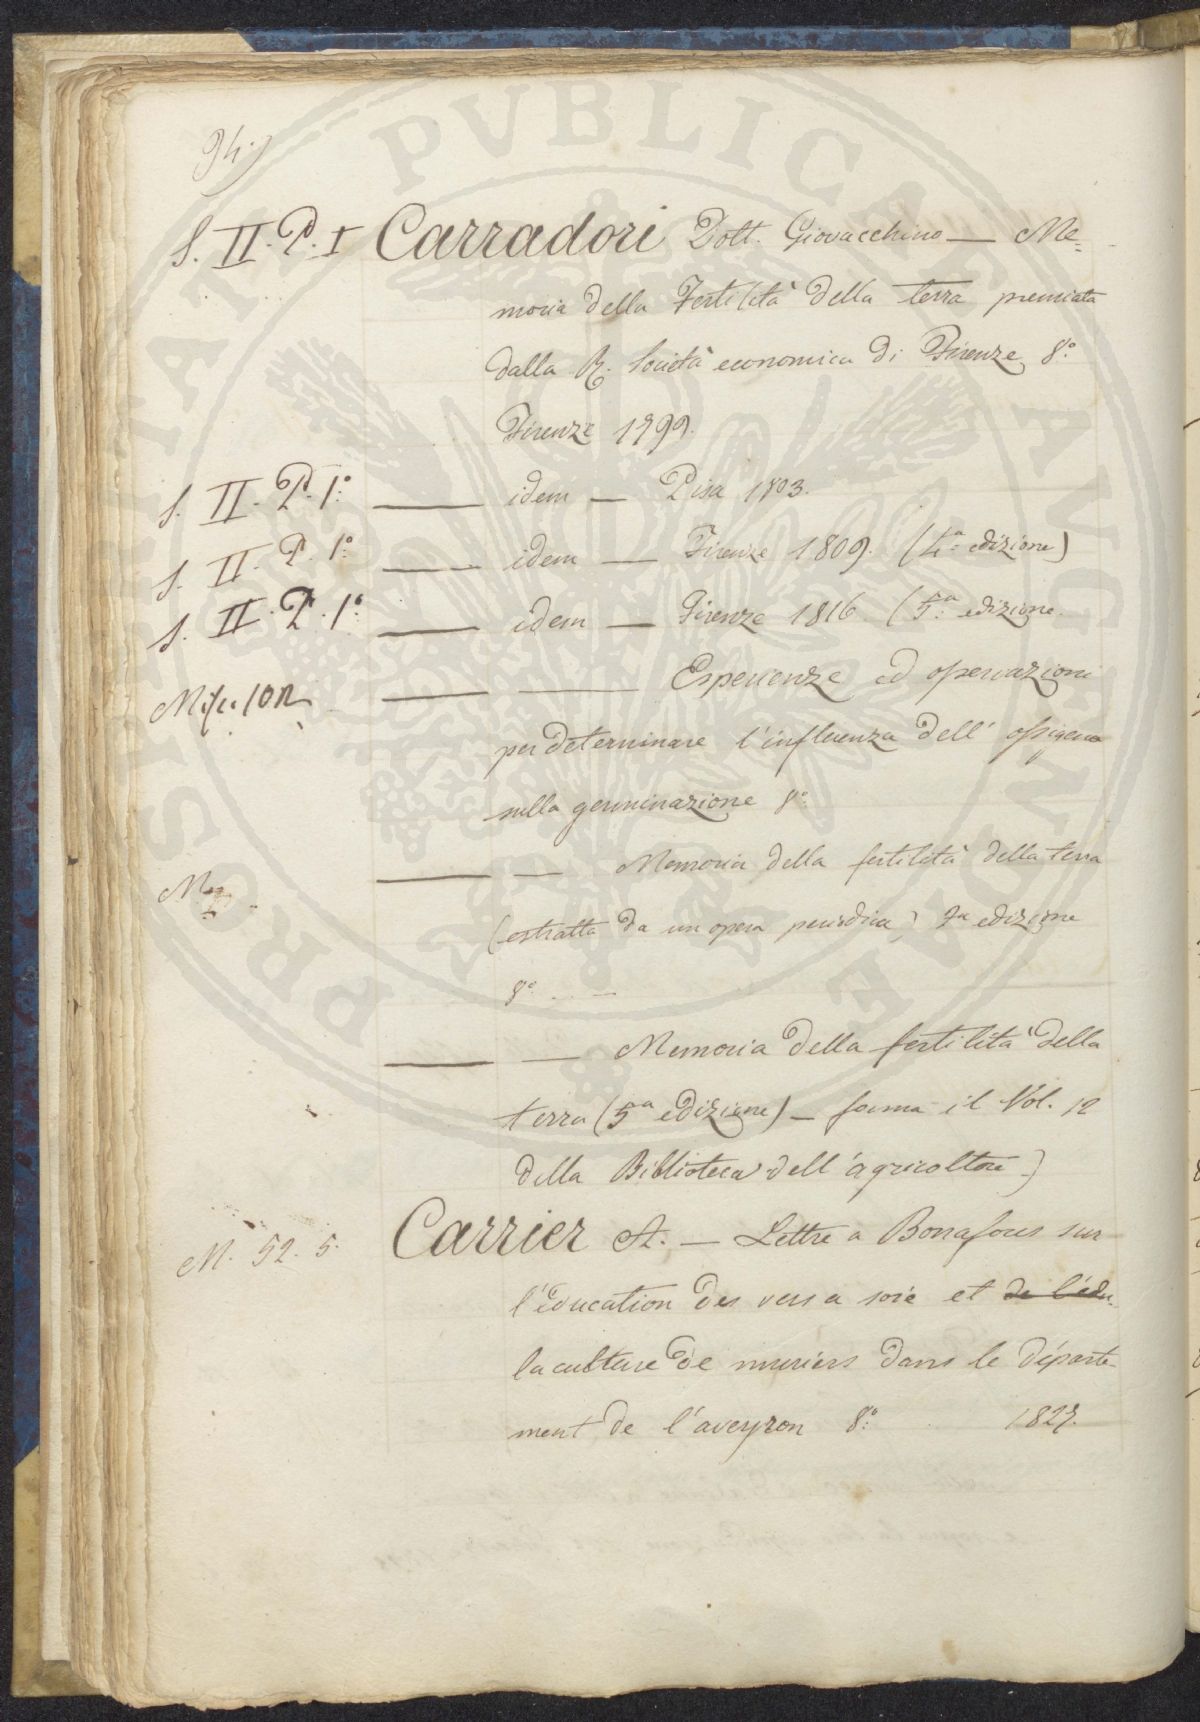 94.)
S. II. P. I Carradori Dott. Giovacchino — Me=
moria della Fertilità della terra premiata
dalla R. Società economica di Firenze 8.°
Firenze 1799.
S. II. P. 1.° —— idem — Pisa 1803.
S. II. P. 1.° —— idem — Firenze 1809. (4.a edizione)
S. II. P. 1.° —— idem — Firenze 1816. (5.a edizione.
—— —— Esperienze ed osservazioni
per determinare l'influenza dell' ossigeno
sulla germinazione 8.°
—— — Memoria della fertilità della terra
(estratta da un opera periodica) 2a edizione
8.° . . —
—— — Memoria della fertilità della
terra (5a edizione) — forma il Vol. 12
della Biblioteca dell'agricoltore)
M. 52. 5. Carrier A. — Lettre a Bonafous sur
l'éducation des vers a soie et de l'édu-
la culture de muriers dans le départe-
ment de l'aveyron 8.° 1827.
PROSPERITATI PVBLICAE AVGENDAE